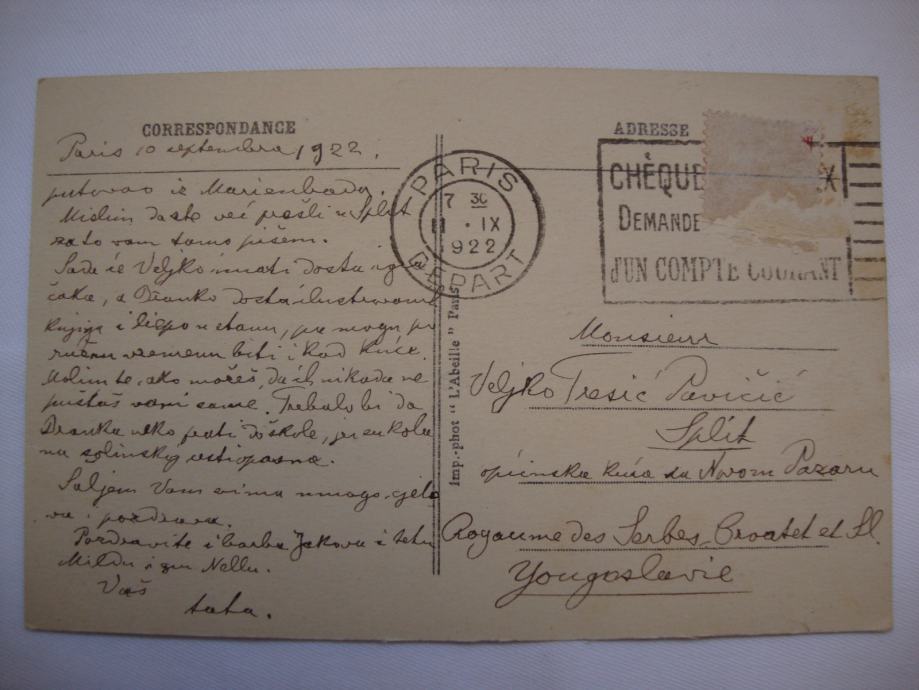 CORRESPONDANCE
Paris 10 septembra 1922.
putovao iz Marienbada.
Mislim da ste već prešli u Split
zato vam tamo pišem.
Sada će Veljko imati dosta igra
čaka, a Dranko dosta ilustrovani
knjiga i liepo u stanu, pa mogu po
ružnu vremenu biti i kod kuće.
Molim te, ako možeš, da ih nikada ne
puštaš vani same. Trebalo bi da
Dranka neko prati do škole, jer su kola
na solinskoj opasna.
Šaljem Vam svima mnogo cjelo
va i pozdrava.
Pozdravite i barba Jakova i tetu
Mildu i Nellu.
Vaš
tata.
PARIS
7 30
11 · IX
1922
DEPART
Imp.-phot " L'Abeille " Paris
ADRESSE
CHÈQUE X
DEMANDE
d'UN COMPTE COURANT
Monsieur
Veljko Tresić Pavičić
Split
općinska kuća na Novom Pazaru
Royaume des Serbes, Croates et Sl.
Yougoslavie